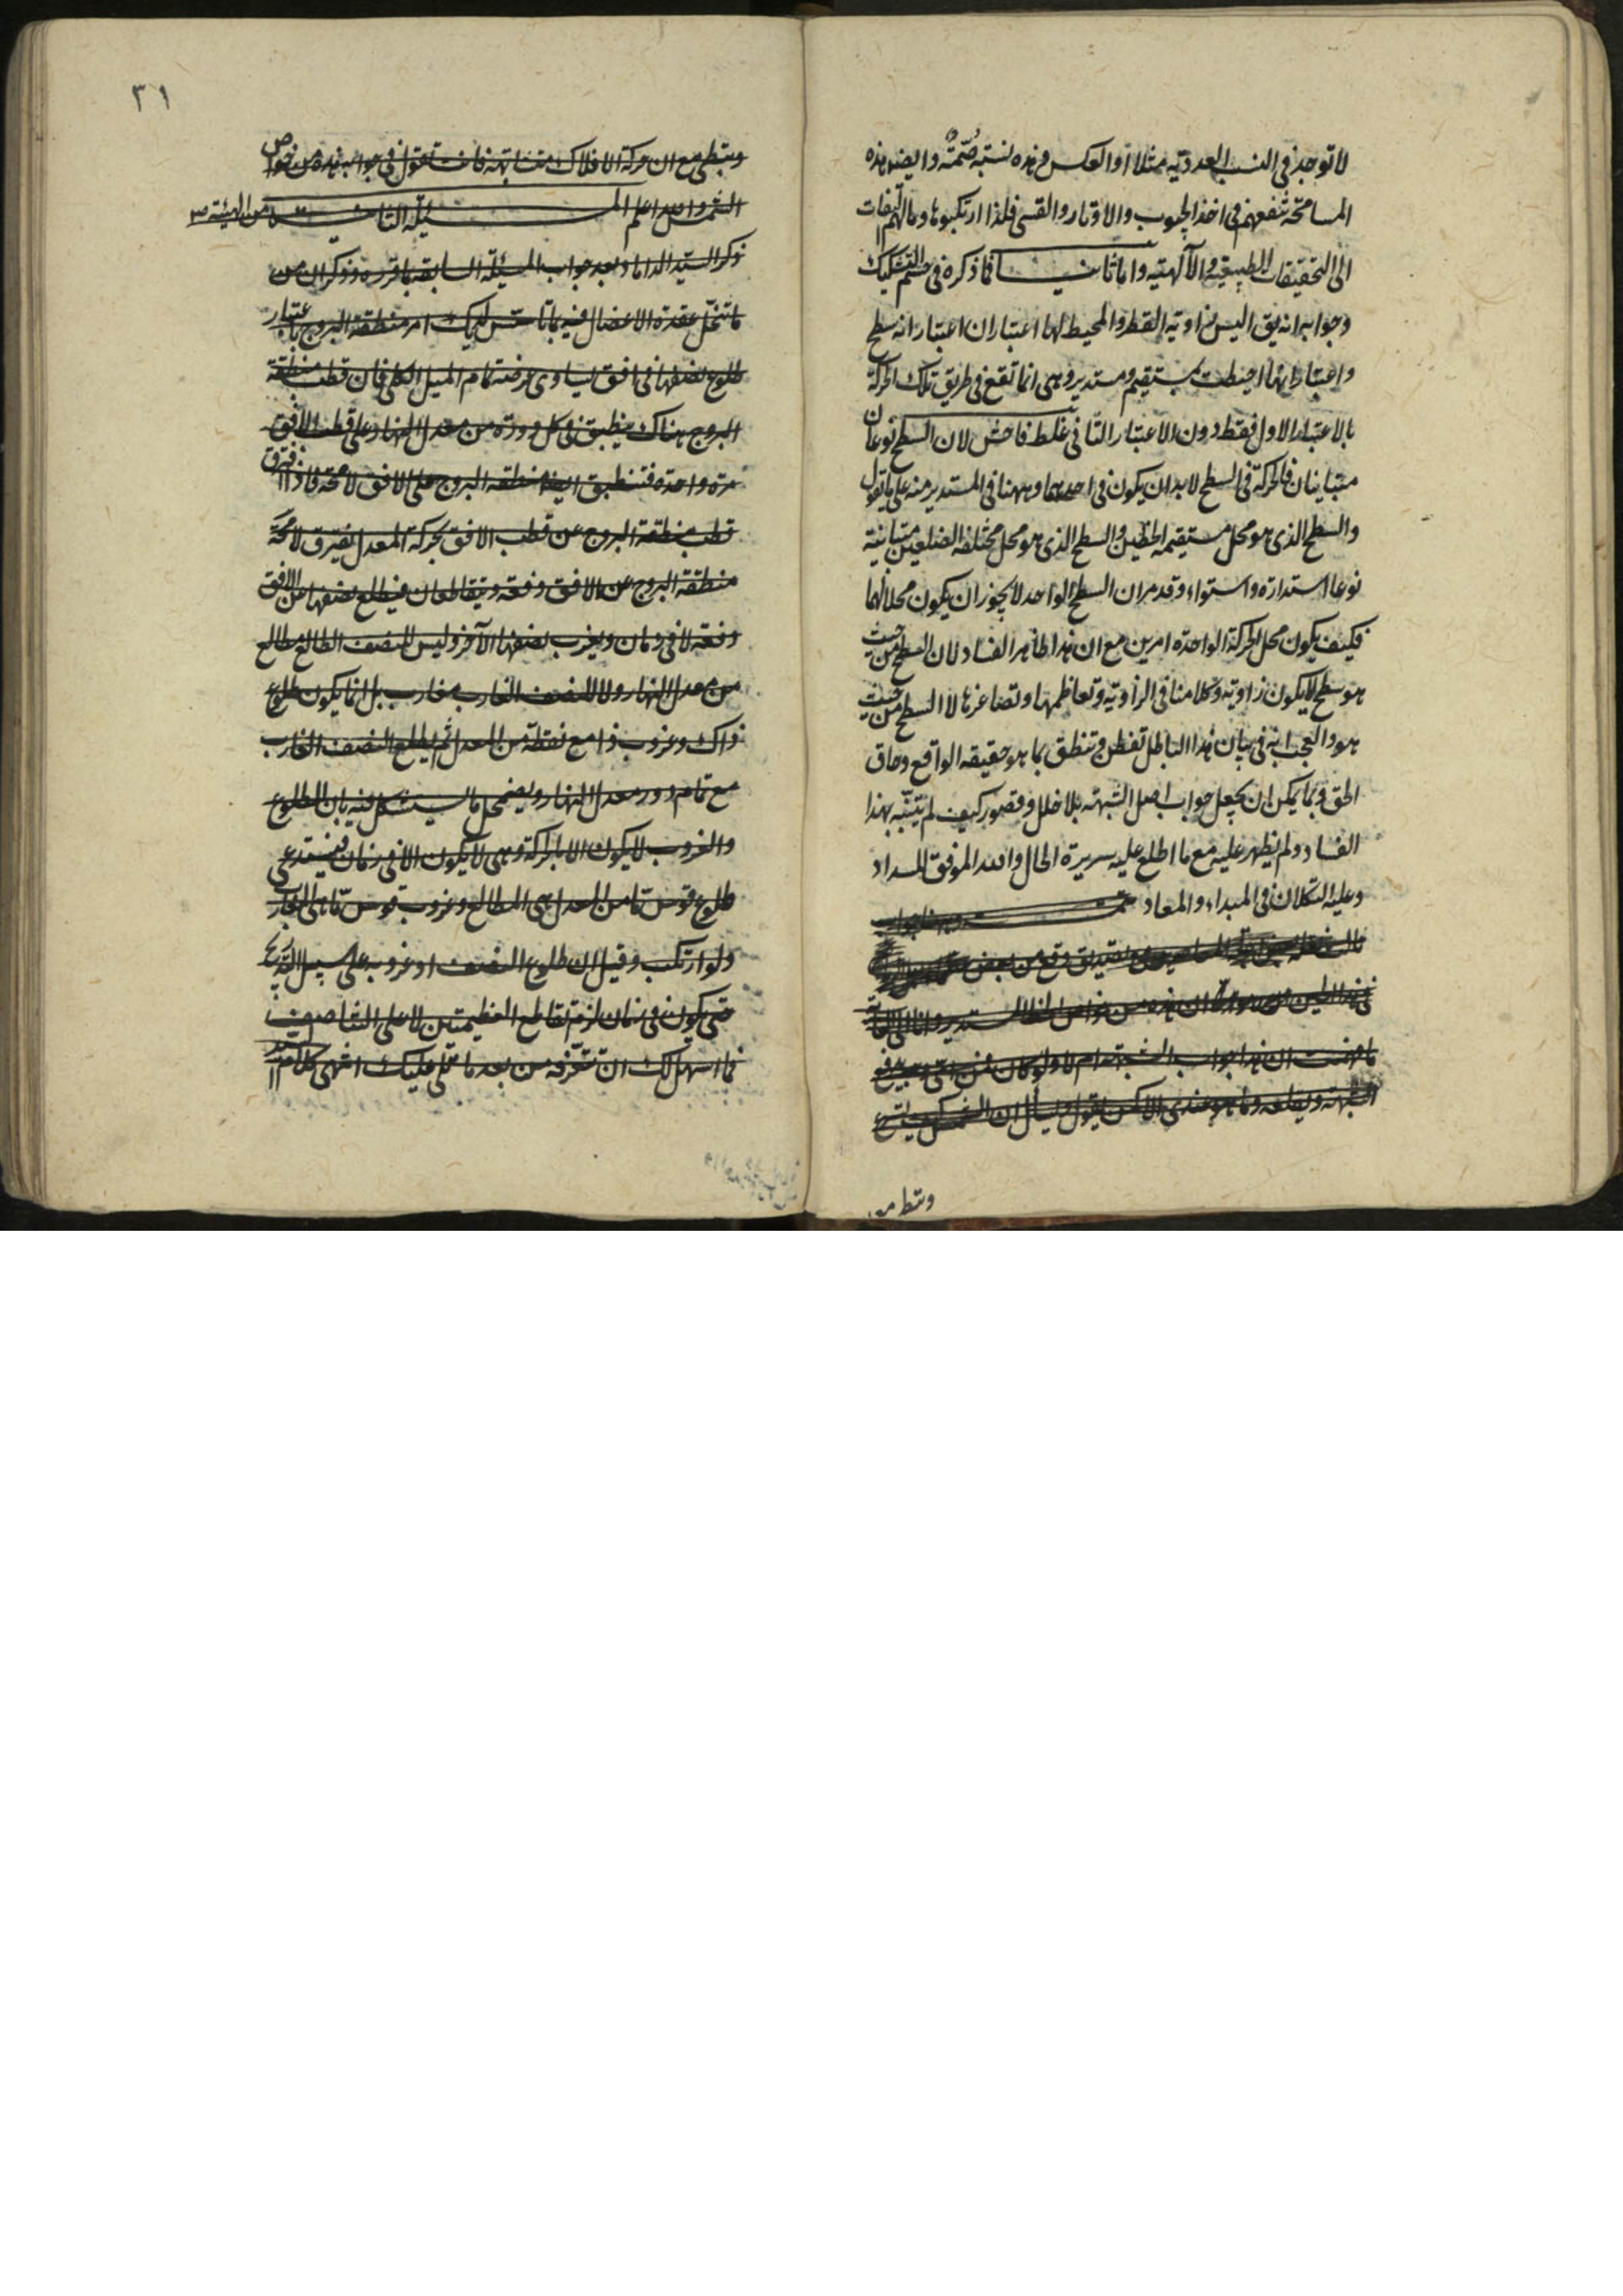 لا توجد في النسب العددية مثلا او العكس فهذه نسبة صمّيّة وايضا هذه
المسامحة تنفعهم في اخذ الجيوب والاوتار والقسى فلذا ارتكبوها وما لهم التفات
الى التحقيقات الطبيعية والآلهية واما ثانيا فما ذكره في حسم التشكيك
وجوابه انه يق اليس زاوية القطر والمحيط لها اعتباران اعتبار انه سطح
واعتبار انها احيطت بمستقيم ومستدير وهى انما تقع في طريق تلك الحركة
بالاعتبار الاول فقط دون الاعتبار الثاني غلط فاحش لان السطح نوعان
متباينان فالحركة في السطح لابد ان يكون في احدهما وههنا في المستدير منه على ما تقول
والسطح الذى هو محل مستقيمة الخطين والسطح الذى هو محل مختلفة الضلعين متباينة
نوعا استدارة واستواء وقد مر ان السطح الواحد لا يجوز ان يكون محلا لهما
فكيف يكون محل الحركة الواحدة امرين مع ان هذا ظاهر الفساد لان السطح من حيث
هو سطح لا يكون زاوية وكلامنا في الزاوية وتعاظمها وتصاغرها لا السطح من حيث
هو والعجب انه في بيان هذا الباطل تفطن وتنطق بما هو حقيقة الواقع وحاق
الحق وبما يمكن ان يجعل جواب اصل الشبهة بلا خلل وقصور كيف لم يتنبّه بهذا
الفساد ولم يظهر عليه مع ما اطلع عليه سريرة الحال والله الموفق للسداد
وعليه التكلان في المبداء والمعاد تمت
ما فهمت ان هذا جواب الشبهة ام لا ولو كان فمن اى وجه يدفع
الشبهة ويقلعه وما هو عندى الا كمن يقول
وتبطى مع
٣١
وتبطى مع ان حركة الافلاك متشابهة فانت تقول في جوابه هذه من خواص
الشمس والله اعلم المسئلة الثانية من الهيئة
ذكر السيد الداماد بعد جواب المسئلة السابقة بما قرره وذكر ان من
ما تنحل عقدة الاعضال فيه بما تأسس لديك امر منطقة البروج باعتبار
طلوع نصفها في افق يساوى عرضه تمام الميل الكلى فان قطب منطقة
البروج هناك ينطبق في كل دورة من معدل النهار على قطب الافق
مرة واحدة فتنطبق ايضا منطقة البروج على الافق لا محة فاذا افترق
قطب منطقة البروج عن قطب الافق بحركة المعدل يفترق لا محة
منطقة البروج عن الافق دفعة ويتقاطعان فيطلع نصفها عن الافق
دفعة لا في زمان ويغرب نصفها الآخر وليس للنصف الطالع مطالع
من معدل النهار ولا للنصف الغارب مغارب بل انما يكون طلوع
ذاك وغروب ذا مع نقطة من المعدل ثم يطلع النصف الغارب
مع تمام دور معدل النهار ويضمحل ما يستشكل فيه بان الطلوع
والغروب لا يكون الا بالحركة وهى لا يكون الا في زمان فيستدعى
طلوع قوس ما من المعدل هى المطالع وغروب قوس ما هى المغارب
ولو ارتكب وقيل ان طلوع النصف او غروبه على سبيل التدريج
حتى يكون في زمان لزم تقاطع العظيمتين لا على التناصف
فما اسهل لك ان تتعرفه من بعد ما تلى عليك انتهى كلام السيد